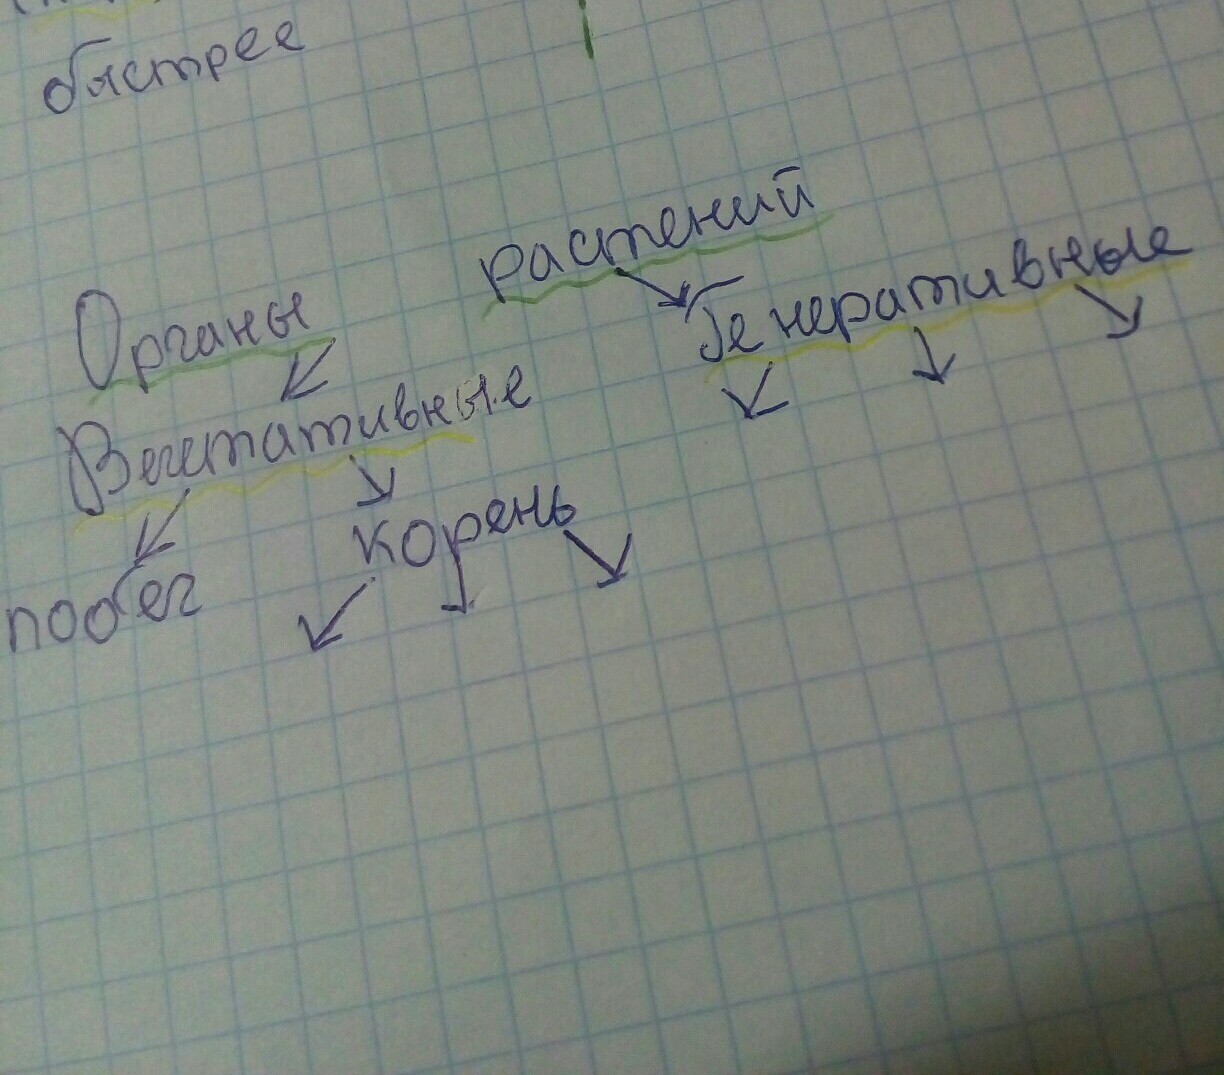 быстрее
Органы растений
Вегетативные Генеративные
побег корень